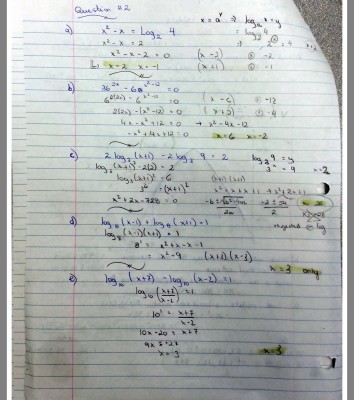 Question #2
x = a^y ⇒ log_a x = y
a) x² - x = log₂ 4
= log₂ 4
x² - x = 2
x² - x - 2 = 0 (x - 2) -2
x = 2 x = -1 (x + 1) -1
b) 36^2x - 6^x²-12 = 0
(x - 6) -12
2(2x) - (x² - 12) = 0 (x + 2) -4
4x - x² + 12 = 0 → x² - 4x - 12
-x² + 4x + 12 = 0 x = 6 x = -2
c) 2 log₃ (x+1) - 2 log₃ 9 = 2 log₃ 9 = y
log₃ (x+1)² - 2(2) = 2
log₃ (x+1)² = 6 (x+1)(x+1)
3⁶ = (x+1)²
x² + 2x - 728 = 0
2a 2
log
d) log (x-1) + log (x+1) = 1
log₈ (x-1)(x+1) = 1
8¹ = x² + x - x - 1
= x² - 9 (x+3)(x-3)
x = 3 only
e) log₁₀ (x+7) - log₁₀ (x-2) = 1
log₁₀ (x+7 / x-2) = 1
10¹ = x+7 / x-2
10x - 20 = x + 7
9x = 27
x = 3 x = 3